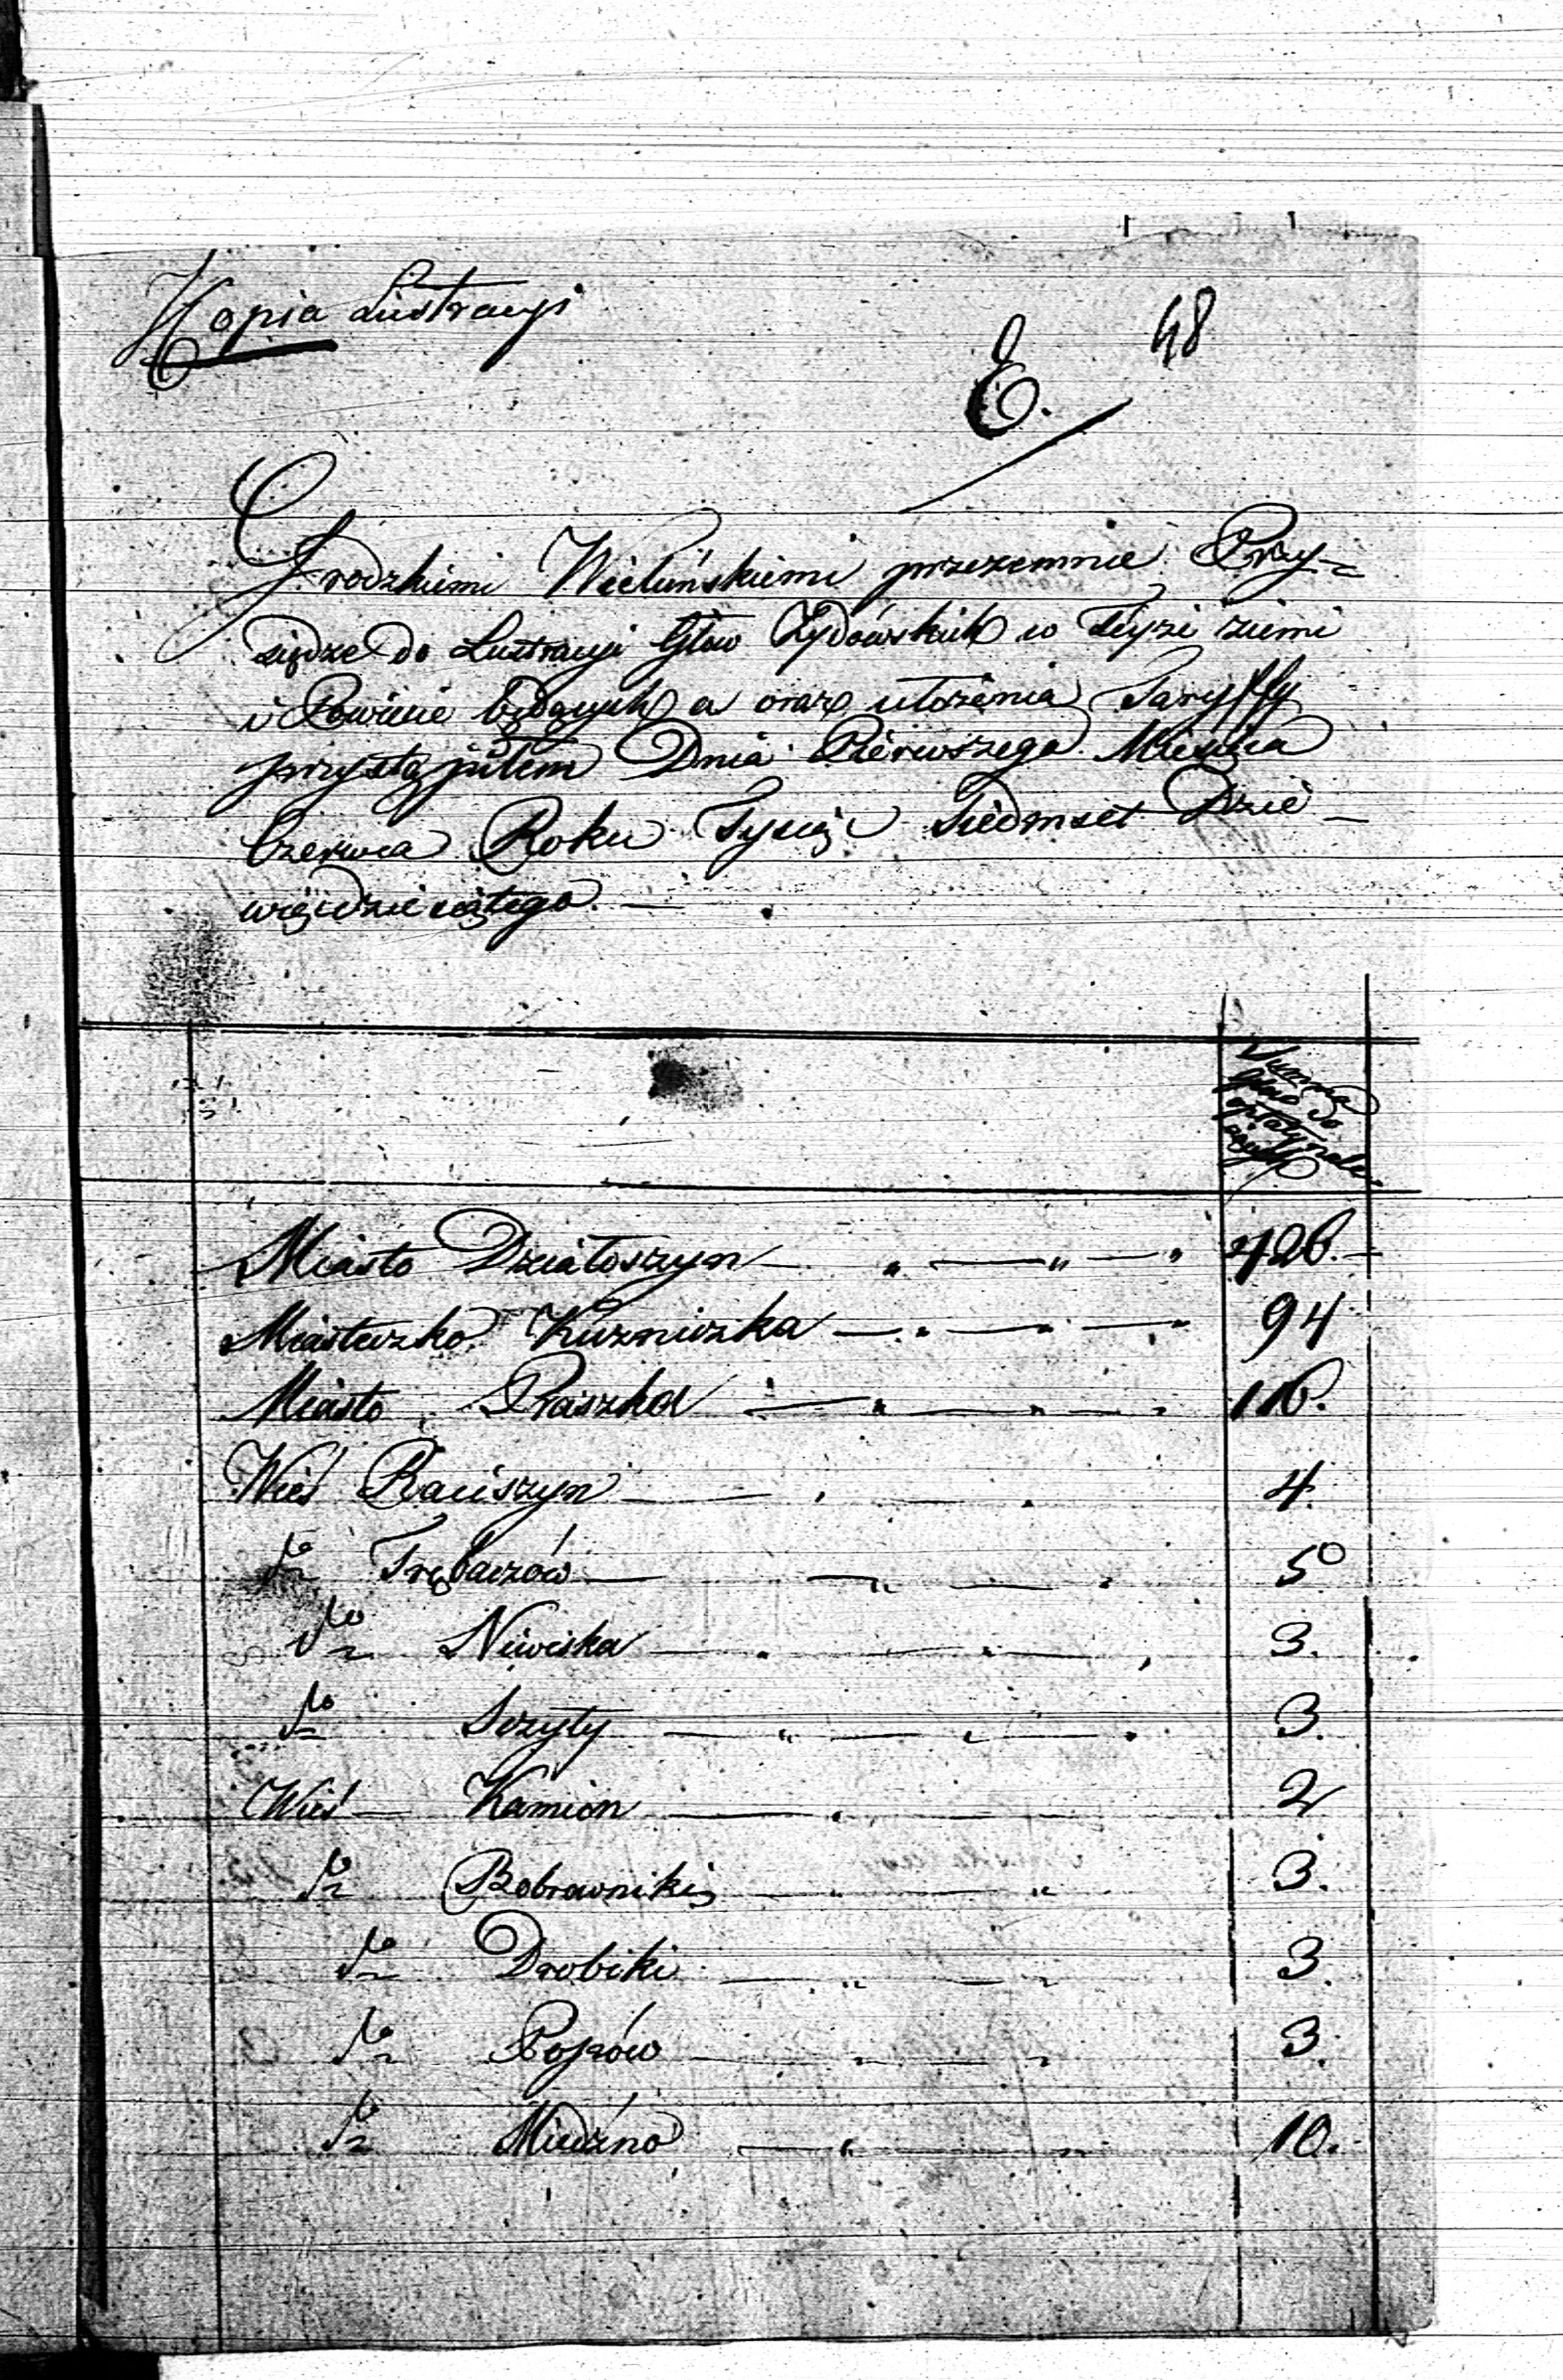 Kopia Lustracyi
48
E.
Grodzkiemi Wieluńskiemi przezemnie Przy-
siędze do Lustracyi Głow Żydowskich w teyże ziemi
i Powiecie będących a oraz ułożenia Taryffy
przystąpiłem Dnia Pierwszego Miesiąca
Czerwca Roku Tysiąc Siedmset Dzie-
więdziesiątego.
Summa
głów do
opłaty należ
ących
Miasto Działoszyn 426.
Miasteczko Kuzniczka 94
Miasto Praszka 116.
Wieś Raciszyn 4.
do Trębaczów 5
do Niwiska 3.
do Szczyty 3.
Wieś Kamion 2
do Bobrowniki 3.
do Drobiki 3.
do Popów 3.
do Miedzno 10.